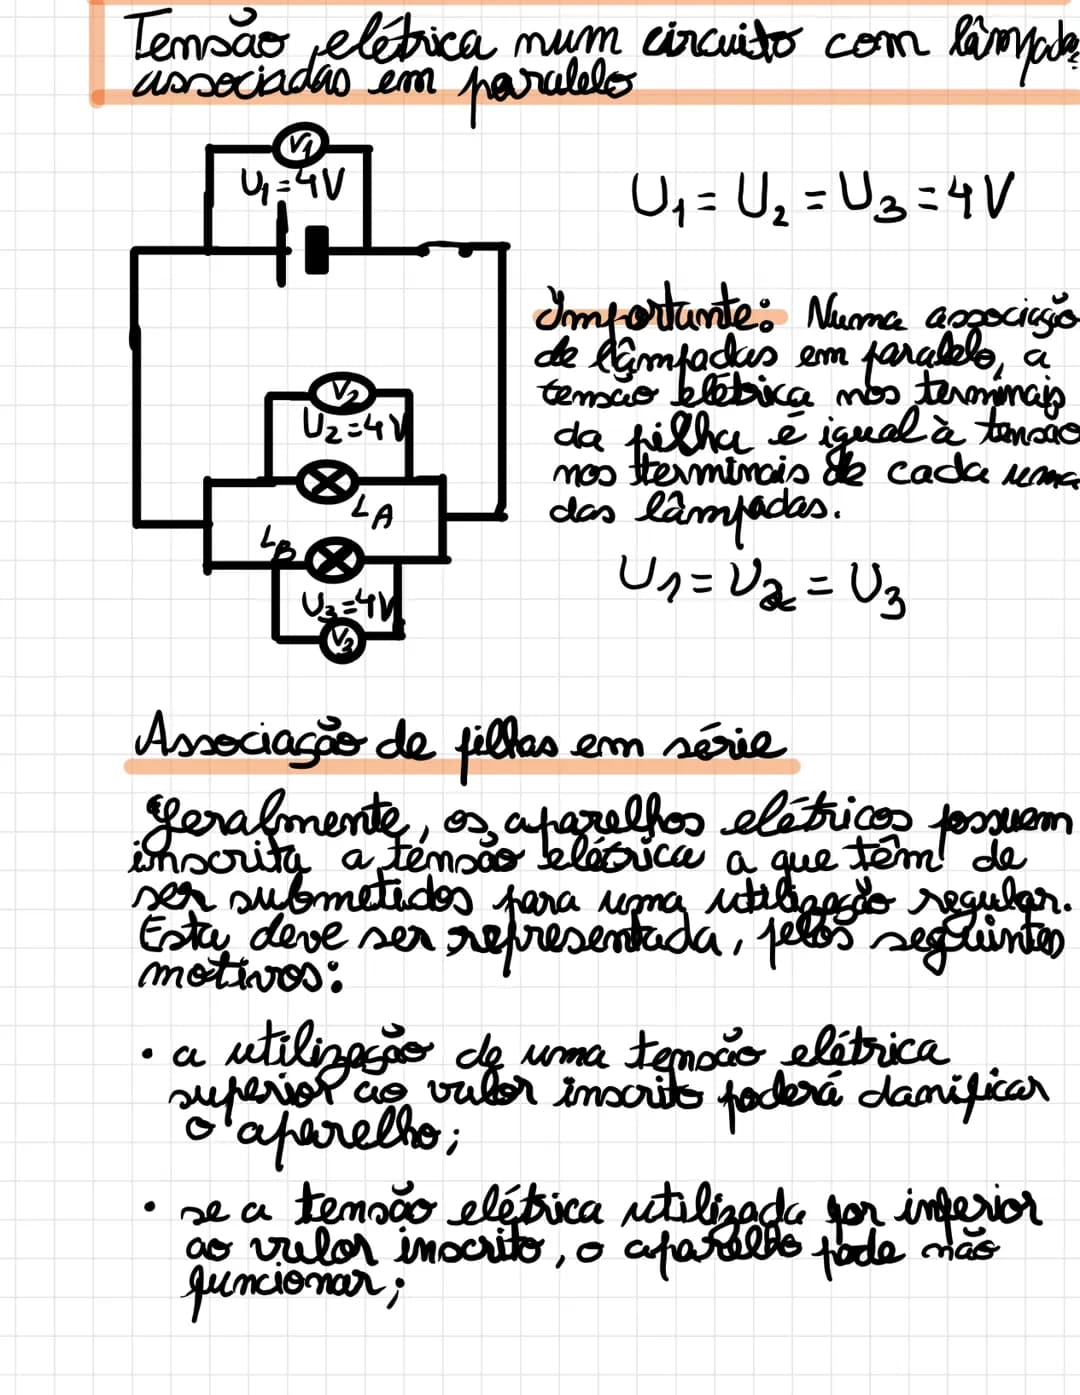 Tensão elétrica num circuito com lâmpadas
associadas em paralelo
V1
U1=4V
U1 = U2 = U3 = 4V
Importante: Numa associação
de lâmpadas em paralelo, a
tensão elétrica nos terminais
da pilha é igual à tensão
nos terminais de cada uma
das lâmpadas.
U1 = U2 = U3
V2
U2=4V
LA
LB
U3=4V
V3
Associação de pilhas em série
Geralmente, os aparelhos elétricos possuem
inscrita a tensão elétrica a que têm de
ser submetidos para uma utilização regular.
Esta deve ser representada, pelos seguintes
motivos:
• a utilização de uma tensão elétrica
superior ao valor inscrito poderá danificar
o aparelho;
• se a tensão elétrica utilizada for inferior
ao valor inscrito, o aparelho pode não
funcionar;